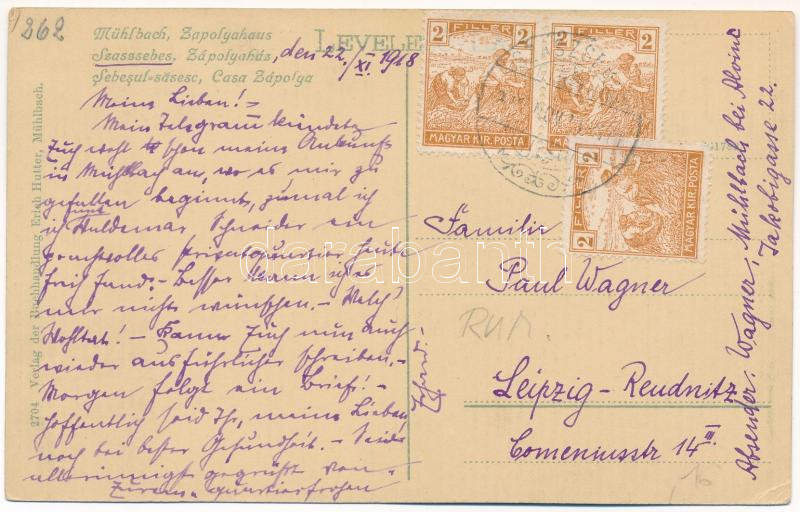 262
Mühlbach, Zapolyahaus
Szászsebes, Zápolyaház,
Sebeşul-săsesc, Casa Zápolya
den 22./XI. 1918
LEVELE
Meine Lieben! –
Mein Telegramm kündete
Euch wohl schon meine Ankunft
in Mühlbach an, wo es mir zu
gefallen beginnt, zumal ich
und
ich Huldemar, Schneider ein
prachtvolles Privatquartier heute
früh fand. – Besser kann ich es
mir nicht wünschen. – Welch'
Wohltat! – Kann Euch nun auch
wieder ausführlicher schreiben. –
Morgen folgt ein Brief! –
Hoffentlich seid Ihr, meine Lieben
noch bei bester Gesundheit. – Seid
allerinnigst gegrüßt von
Eurem quartierfrohen
2704 Verlag der Buchhandlung Erich Hutter, Mühlbach.
FILLÉR
2 2
MAGYAR KIR. POSTA
FILLÉR
2 2
MAGYAR KIR. POSTA
FILLÉR
2 2
MAGYAR KIR. POSTA
Familie
Paul Wagner
RUM.
Leipzig-Reudnitz
Comeniusstr 14 III.
Absender: Wagner, Mühlbach bei Alvinz
Jakobigasse 22.
darabanth